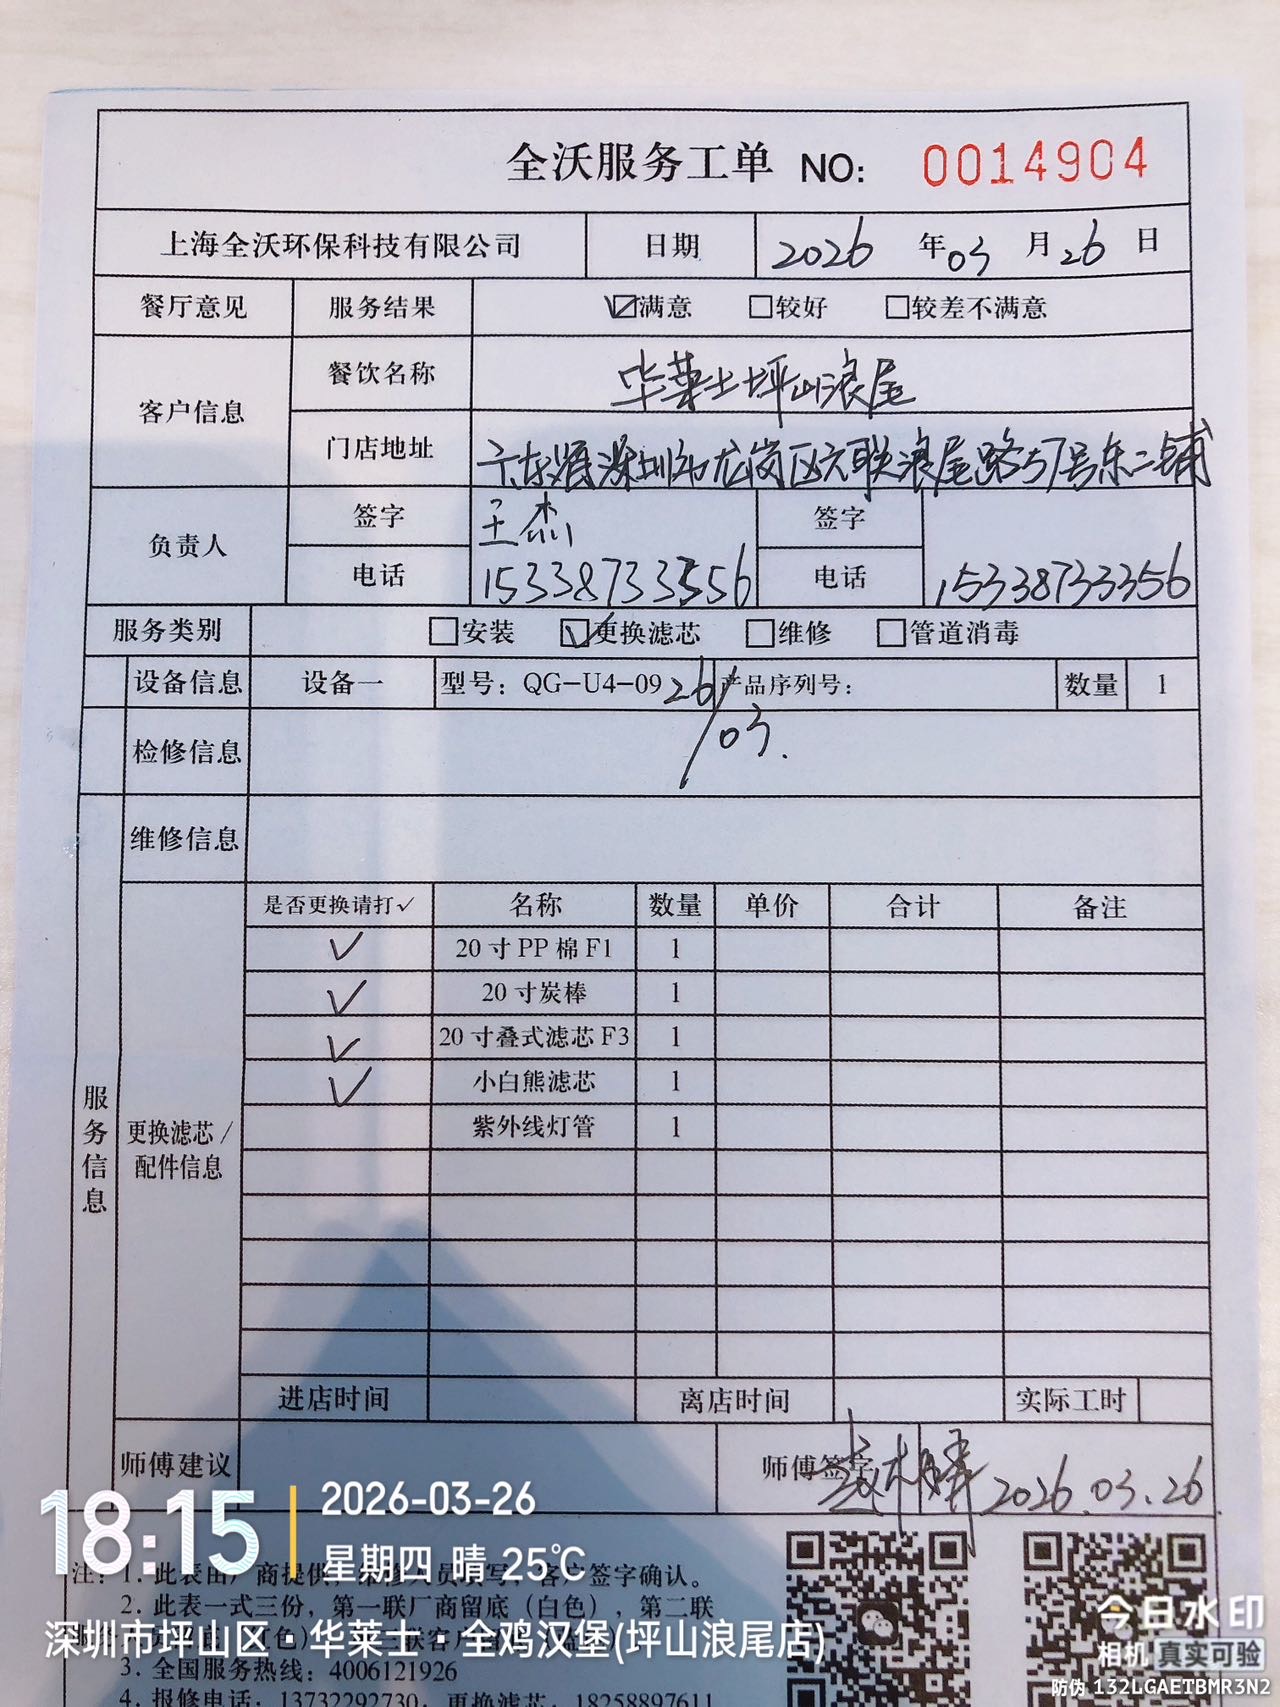 全沃服务工单 NO: 0014904
上海全沃环保科技有限公司 日期 2026 年 03 月 26 日
餐厅意见 服务结果 ☑满意 □较好 □较差不满意
客户信息 餐饮名称 华莱士坪山浪尾
门店地址 广东省深圳市龙岗区六联浪尾路57号东二铺
负责人 签字 王杰 签字
电话 15338733556 电话 15338733356
服务类别 □安装 ☑更换滤芯 □维修 □管道消毒
设备信息 设备一 型号：QG-U4-09 26/03. 产品序列号： 数量 1
检修信息
维修信息
服务信息
更换滤芯/配件信息
是否更换请打✓ 名称 数量 单价 合计 备注
✓ 20寸PP棉F1 1
✓ 20寸炭棒 1
✓ 20寸叠式滤芯F3 1
✓ 小白熊滤芯 1
紫外线灯管 1
进店时间 离店时间 实际工时
师傅建议 师傅签字 2026.03.26
18:15 2026-03-26
星期四 晴 25℃
注：1. 此表由厂商提供，维修人员填写，客户签字确认。
2. 此表一式三份，第一联厂商留底（白色），第二联
深圳市坪山区·华莱士·全鸡汉堡(坪山浪尾店)
3. 全国服务热线：4006121926
4. 报修电话：13732292730 更换滤芯：18258897611
今日水印
相机 真实可验
防伪 132LGAETBMR3N2